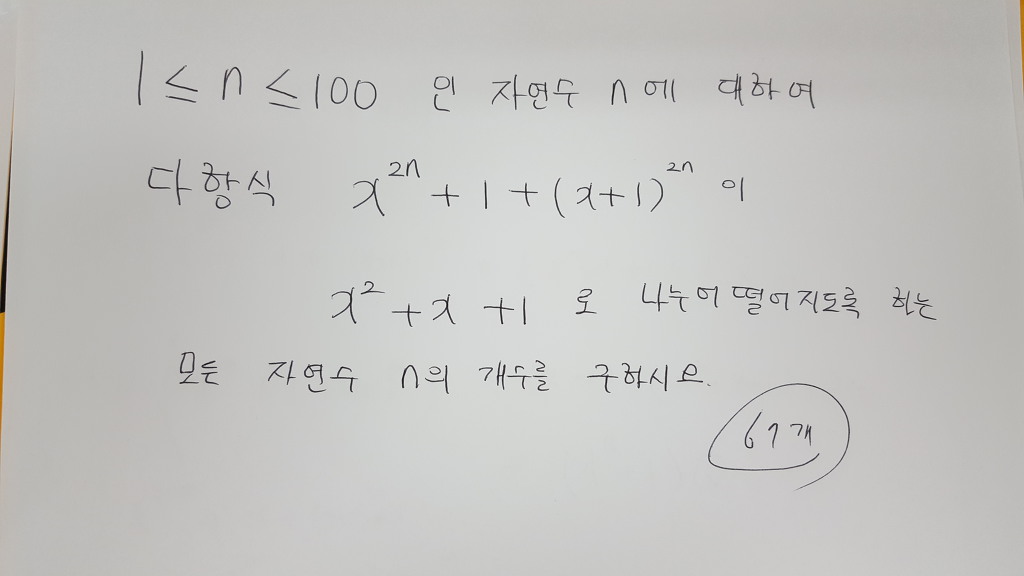 1 ≤ n ≤ 100 인 자연수 n에 대하여
다항식 x^{2n} + 1 + (x+1)^{2n} 이
x^2 + x + 1 로 나누어떨어지도록 하는
모든 자연수 n의 개수를 구하시오.
67개